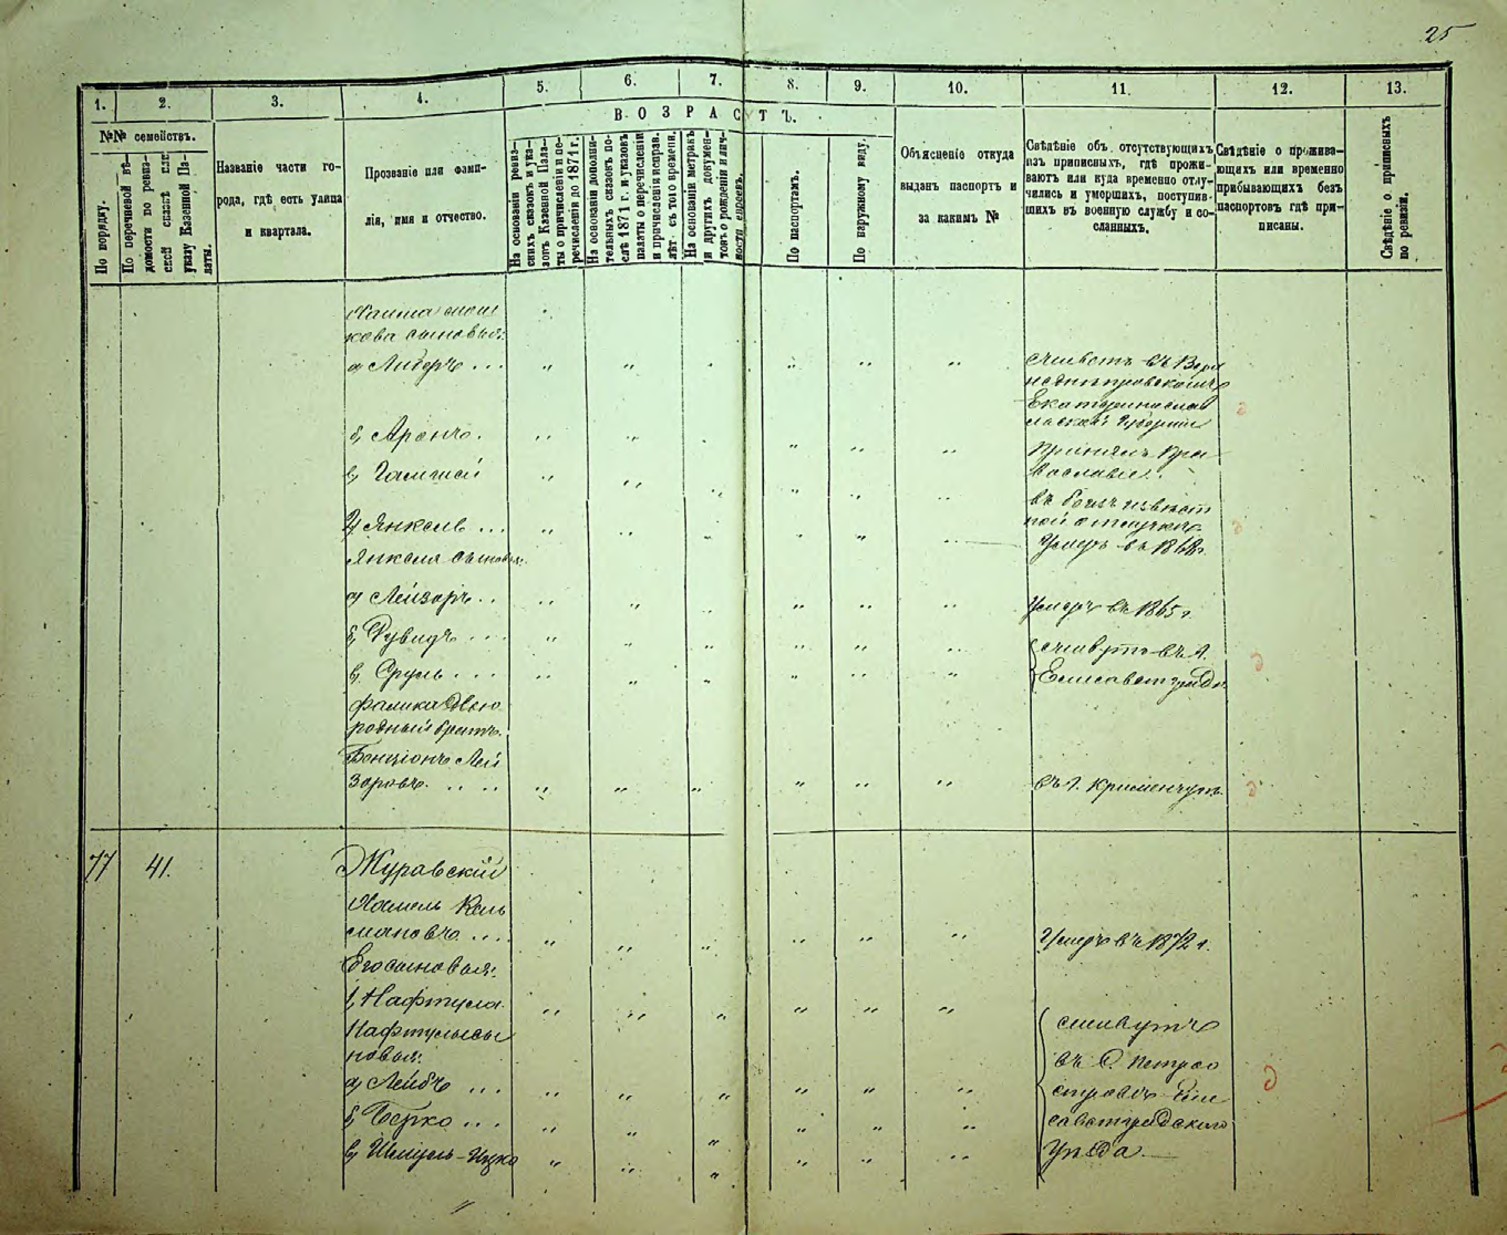 25
1. 2. 3. 4. 5. 6. 7. 8. 9. 10. 11. 12. 13.
№№ семействъ.
По порядку.
По перечневой вѣ-
домости по ревиз-
ской сказкѣ или
указу Казенной Па-
латы.
Названіе части го-
рода, гдѣ есть улица
и квартала.
Прозваніе или фами-
лія, имя и отчество.
ВОЗРАСТЪ.
На основаніи ревиз-
скихъ сказокъ и ука-
зовъ Казенной Пала-
ты о причисленіи и пе-
речисленіи до 1871 г.
На основаніи дополни-
тельныхъ сказокъ по-
слѣ 1871 г. и указовъ
палаты о перечисленіи
и причисленіи исправ.
лѣт. съ того времени.
На основаніи метрикъ
и другихъ докумен-
товъ о рожденіи и лич-
ности евреевъ.
По паспортамъ.
По наружному виду.
Объясненіе откуда
выданъ паспортъ и
за какимъ №
Свѣдѣніе объ отсутствующихъ
изъ приписныхъ, гдѣ прожи-
ваютъ или куда временно отлу-
чились и умершихъ, поступив-
шихъ въ военную службу и со-
сланныхъ.
Свѣдѣніе о прожива-
ющихъ или временно
прибывающихъ безъ
паспортовъ гдѣ при-
писаны.
Свѣдѣніе о приписныхъ
по ревизіи.
Хаима Мош
кова сыновья:
а, Либеръ . . . живетъ въ Верх
недннпровскомъ
Екатеринослав
ской Губерніи
б, Аронъ. Принялъ Пра
вославіе.
в, Гамшей въ безъизвѣст
ной отлучкѣ
г, Янкель . . . Умеръ въ 1868 г.
Янкеля сыновья:
а, Лейзоръ . . Умеръ въ 1865 г.
б, Дувидъ . . . живутъ въ г.
в, Сруль . . . Елисаветградѣ
Фалика двою
родный братъ.
Бенціонъ Лей
зоровъ. . . . . въ г. Кременчугѣ.
77 41. Журавскій
Хаимель Каль
мановъ . . . . Умеръ въ 1872 г.
Его сыновья:
1, Нафтула живутъ
Нафтулы сы
новья: въ С. Петрсо
а, Лейбъ . . . стровѣ Ели
б, Берко . . . саветградского
в, Шмуль-Ицко Уѣзда.